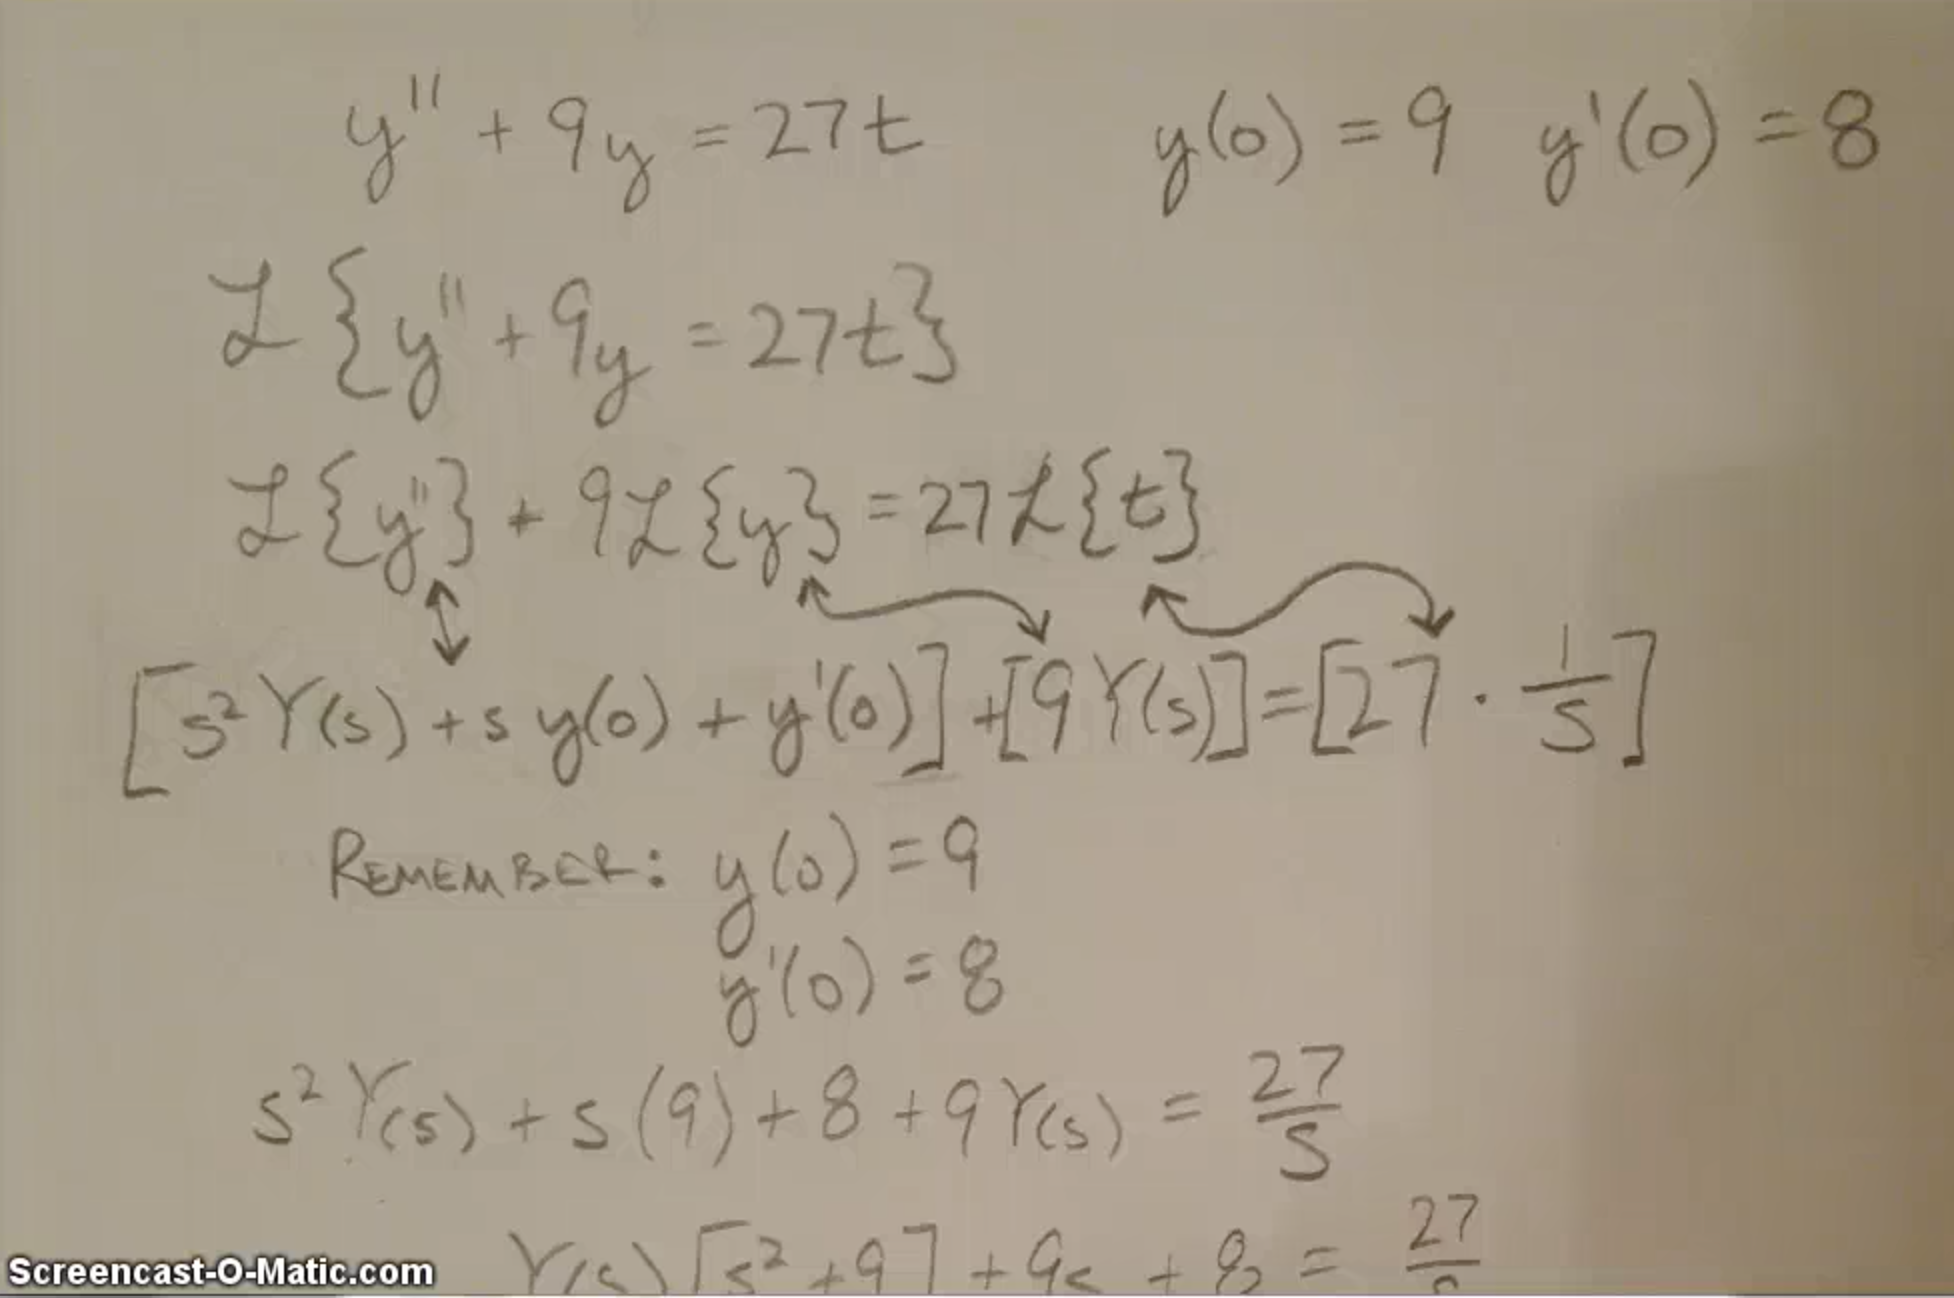 y'' + 9y = 27t    y(0) = 9  y'(0) = 8
ℒ{y'' + 9y = 27t}
ℒ{y''} + 9ℒ{y} = 27ℒ{t}
[s²Y(s) + s y(0) + y'(0)] + [9Y(s)] = [27 · 1/s]
REMEMBER: y(0) = 9
y'(0) = 8
s²Y(s) + s(9) + 8 + 9Y(s) = 27/s
Y(s)[s² + 9] + 9s + 8 = 27/s
Screencast-O-Matic.com